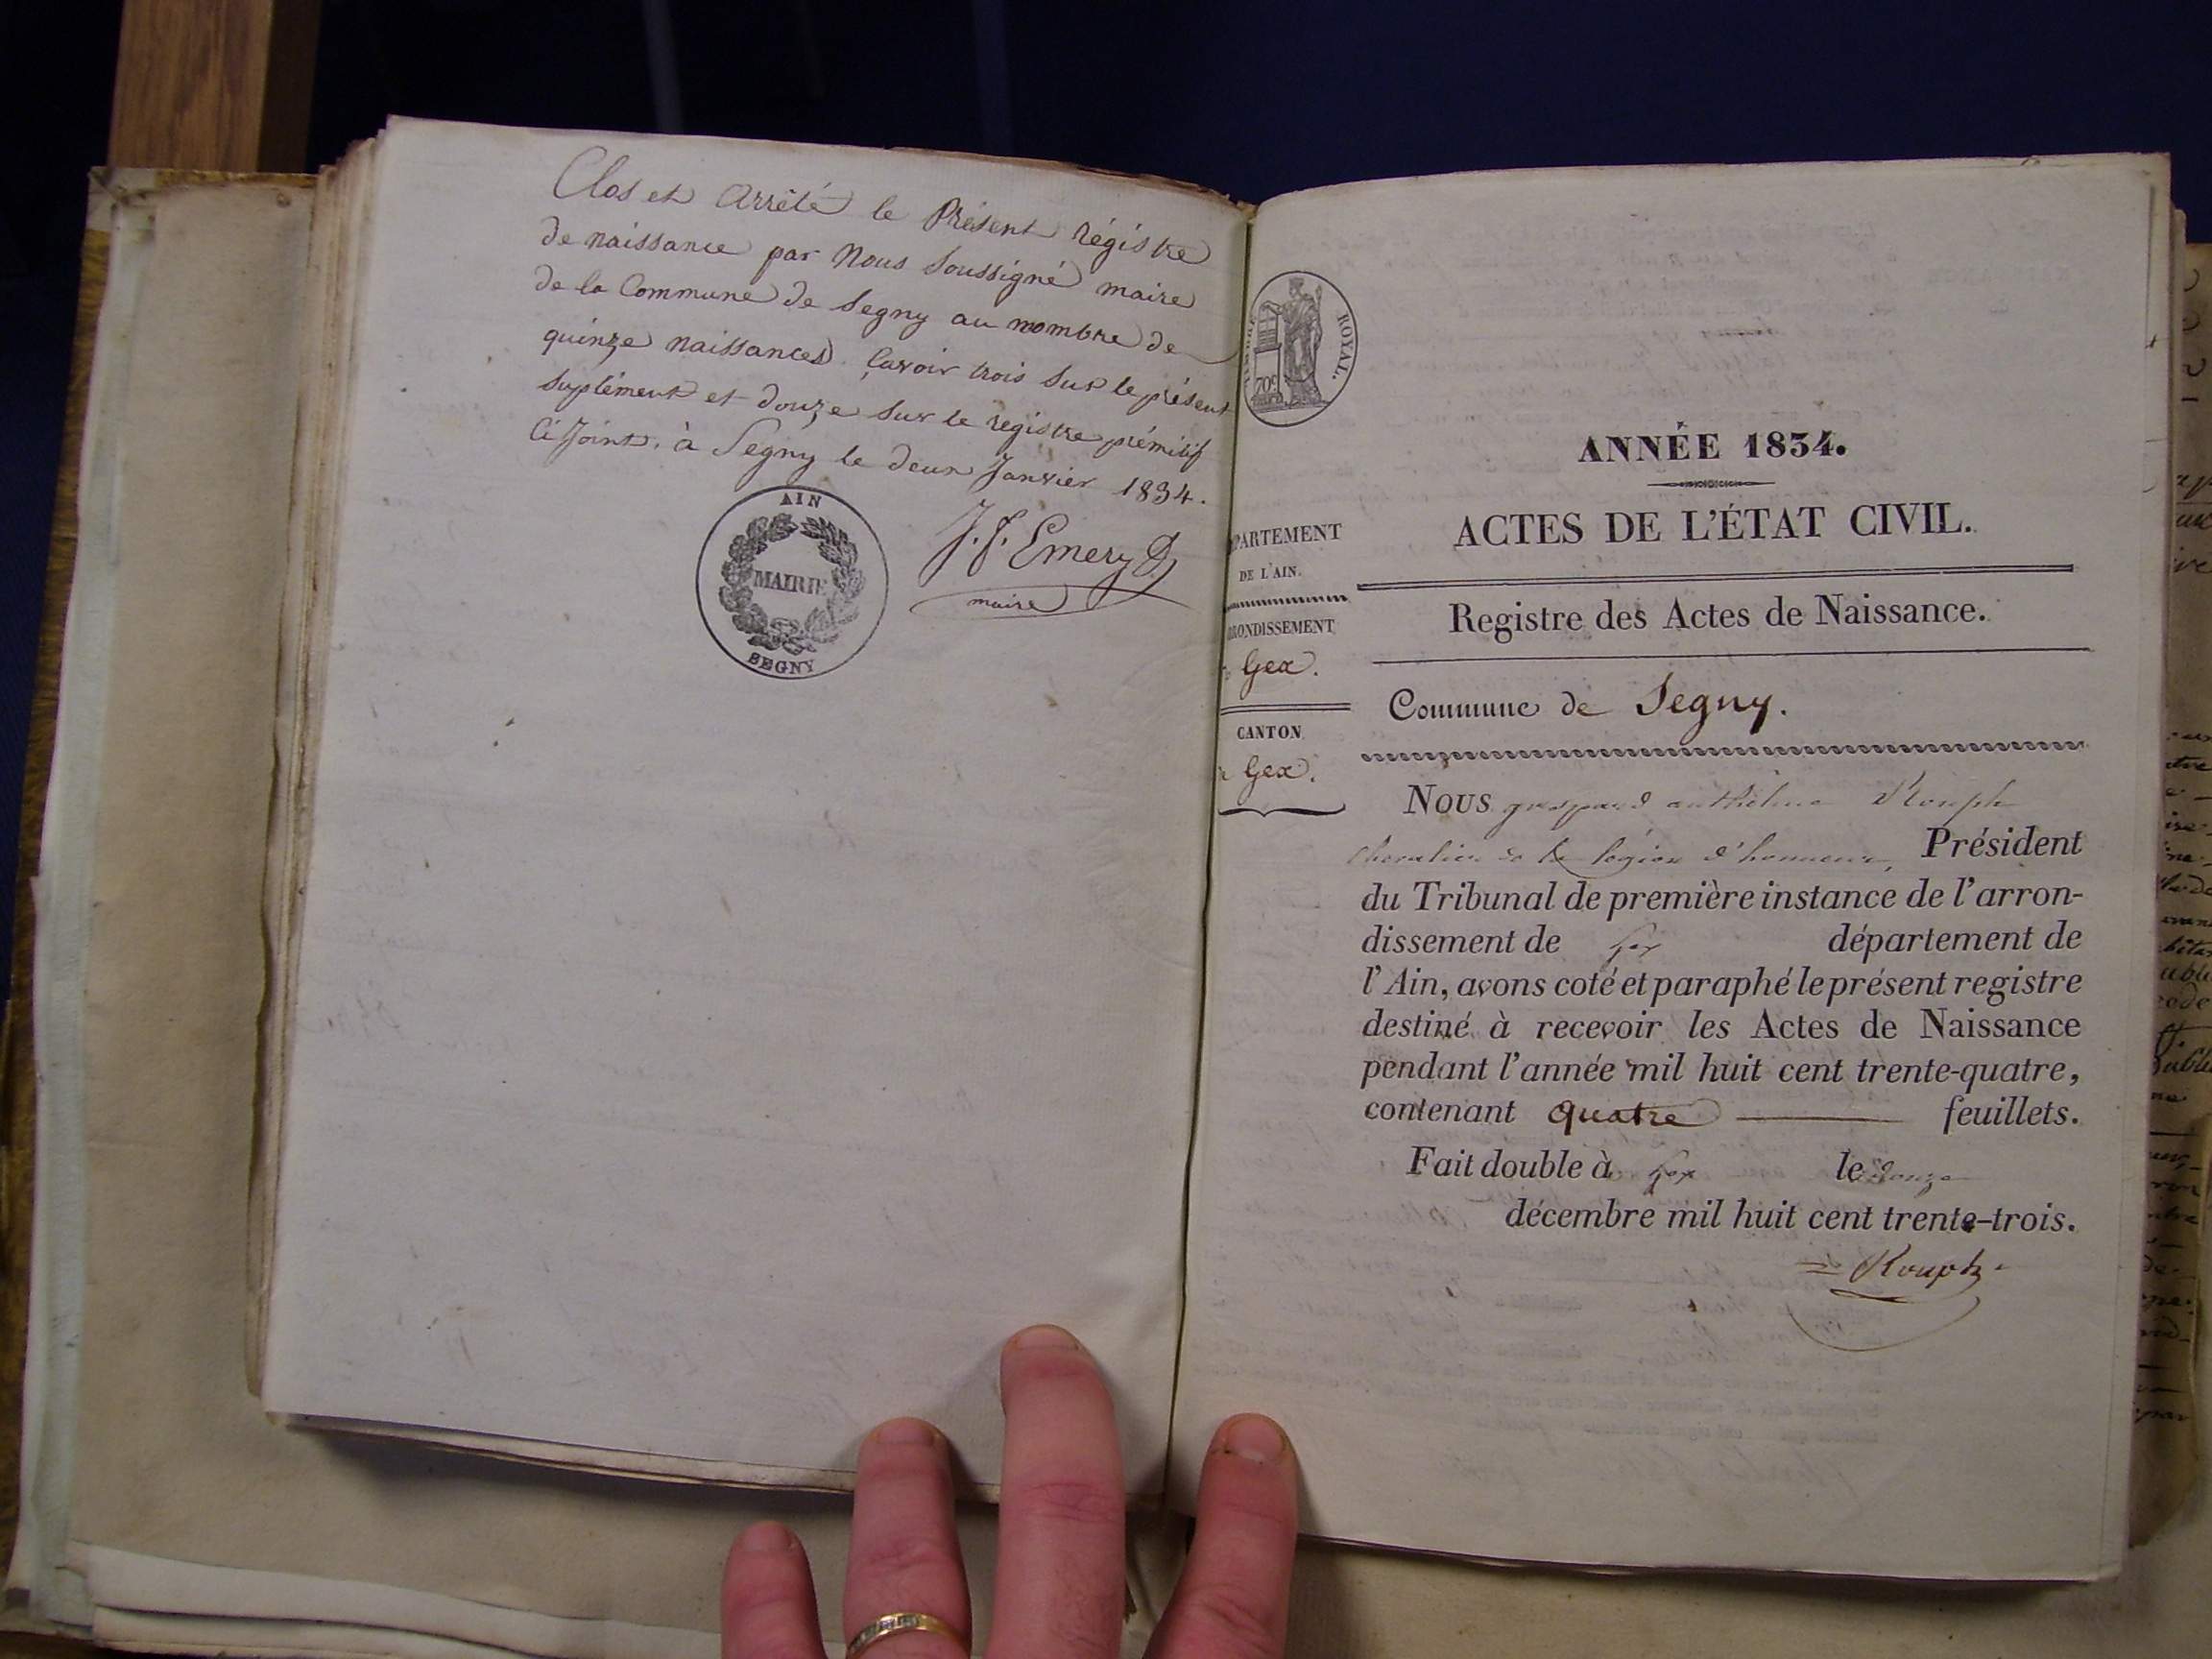 Clos et Arrêté le Présent régistre
de naissance par Nous Soussigné maire
de la Commune de Segny au nombre de
quinze naissances. Savoir trois Sur le présent
Suplément et douze Sur le registre prémitif
Ci Joint. à Segny le deux Janvier 1834.
AIN
MAIRIE
SEGNY
J. f. Emery
maire
TIMBRE ROYAL.
70c
ANNÉE 1834.
ACTES DE L'ÉTAT CIVIL.
PARTEMENT
DE L'AIN.
RONDISSEMENT
Gex.
CANTON
Gex.
Registre des Actes de Naissance.
Commune de Segny.
Nous gaspard anthelme Rouph
chevalier de la légion d'honneur, Président
du Tribunal de première instance de l'arron-
dissement de Gex département de
l'Ain, avons coté et paraphé le présent registre
destiné à recevoir les Actes de Naissance
pendant l'année mil huit cent trente-quatre,
contenant quatre feuillets.
Fait double à Gex le douze
décembre mil huit cent trente-trois.
Rouph